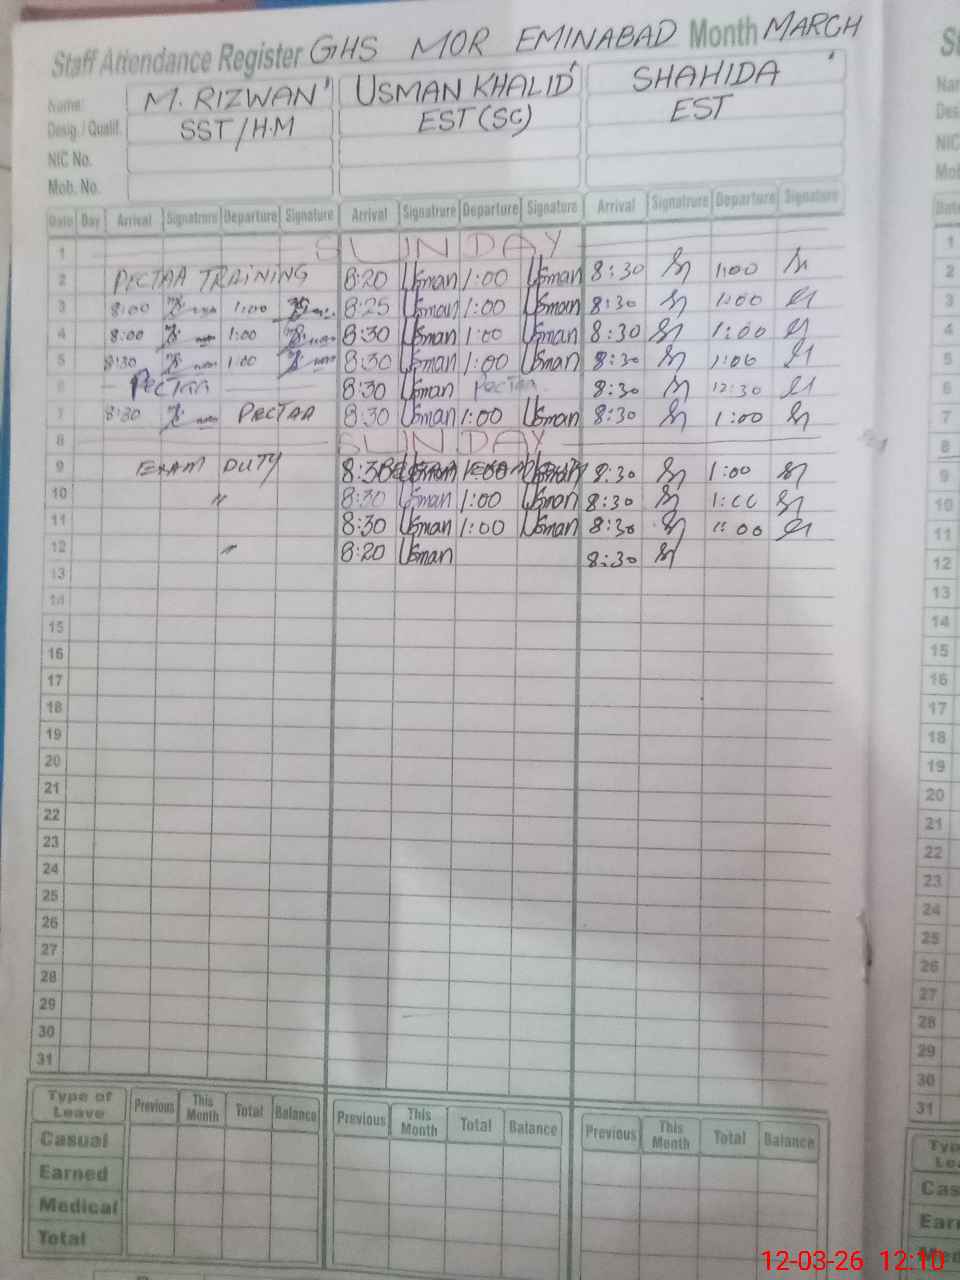 Staff Attendance Register GHS MOR EMINABAD Month MARCH
Name: M. RIZWAN USMAN KHALID SHAHIDA
Desig./ Qualif. SST/H.M EST (SC) EST
NIC No.
Mob. No.
Date Day Arrival Signatrure Departure Signature Arrival Signatrure Departure Signature Arrival Signatrure Departure Signature
1 SUNDAY
2 PECTAA TRAINING 8:20 Usman 1:00 Usman 8:30 1:00
3 8:00 1:00 8:25 Usman 1:00 Usman 8:30 1:00
4 8:00 1:00 8:30 Usman 1:00 Usman 8:30 1:00
5 8:30 1:00 8:30 Usman 1:00 Usman 8:30 1:00
6 PECTAA 8:30 Usman PECTAA 8:30 12:30
7 8:30 PECTAA 8:30 Usman 1:00 Usman 8:30 1:00
8 SUNDAY
9 EXAM DUTY 8:30 8:30 1:00
10 " 8:30 Usman 1:00 Usman 8:30 1:00
11 8:30 Usman 1:00 Usman 8:30 11:00
12 " 8:20 Usman 8:30
13
14
15
16
17
18
19
20
21
22
23
24
25
26
27
28
29
30
31
Type of Leave Previous This Month Total Balance Previous This Month Total Balance Previous This Month Total Balance
Casual
Earned
Medical
Total
12-03-26 12:10